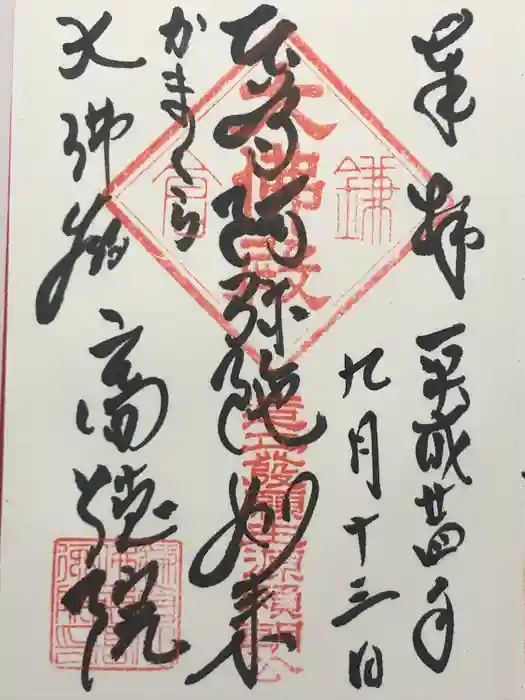 奉拝 平成廿四年
九月十三日
本尊阿弥陀如来
かまくら
大佛殿 高徳院
大佛殿
鎌
倉